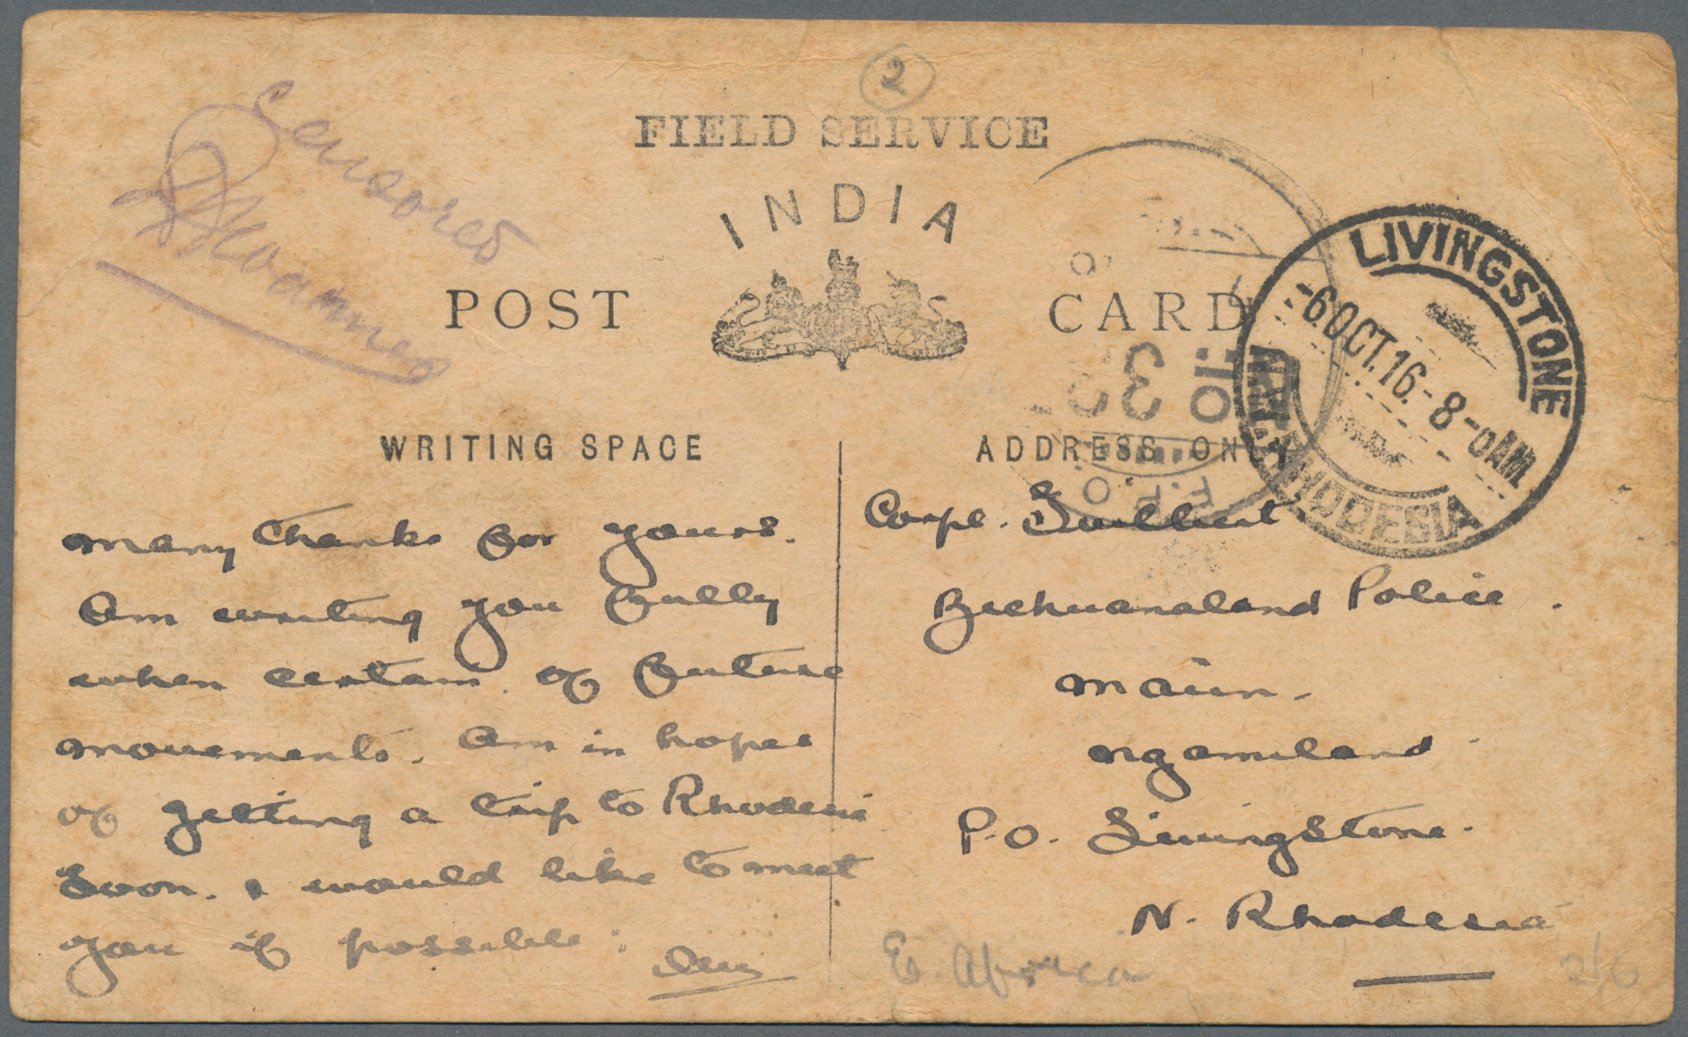 2
FIELD SERVICE
Censored
INDIA
POST CARD
LIVINGSTONE
-6 OCT.16.-8-0AM
RHODESIA
30
F.P.O.
WRITING SPACE
ADDRESS ONLY
many thanks for yours.
Am writing you fully
when certain of future
movements. Am in hopes
of getting a trip to Rhodesia
soon. & would like to meet
you if possible.
Corpl.
Bechuanaland Police.
Maun.
Ngamiland.
P.O. Livingstone.
N. Rhodesia
E. Africa
2/6